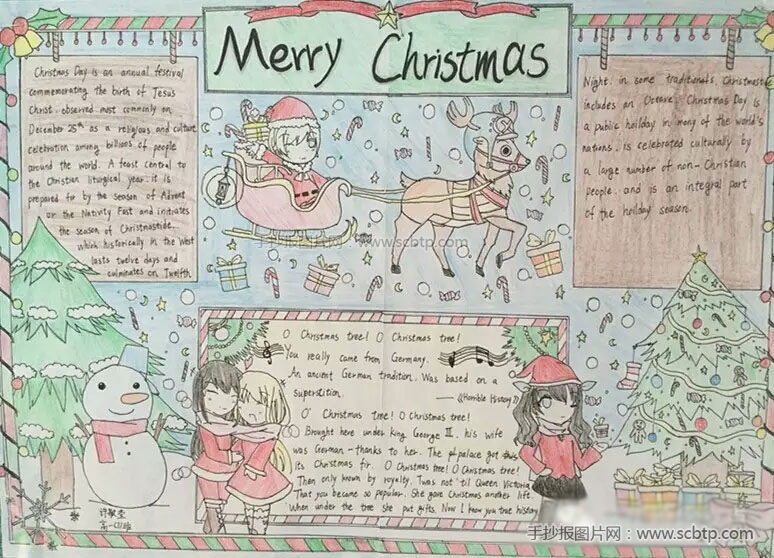 Merry Christmas
Christmas Day is an annual festival
commemorating the birth of Jesus
Christ. observed most commonly on
December 25th as a religious and culture
celebration among billions of people
around the world. A feast central to
the Christian liturgical year. it is
prepared for by the season of Advent
or the Nativity Fast and initiates
the season of Christmastide,
which historically in the West
lasts twelve days and
culminates on Twelfth
Night. in some traditionals, Christmast
includes an Octave. Christmas Day is
a public heilday in many of the world's
nations. is celebrated culturally by
a large number of non-Christian
people. and is an integral part
of the hoilday season.
手抄报图片网:www.scbtp.com
O Christmas tree! O Christmas tree!
You really came from Germany.
An ancient German tradition. Was based on a
superstition.
——《Horrible History》
O' Christmas tree! O Christmas tree!
Brought here under king George III. his wife
was German-thanks to her. The palace got
its Christmas fir. O Christmas tree! O Christmas tree!
Then only known by royalty. Twas not 'til Queen Victoria
That you became so popular. She gave Christmas another life.
When under the tree she put gifts. Now I know you true history
手抄报图片网:www.scbtp.com